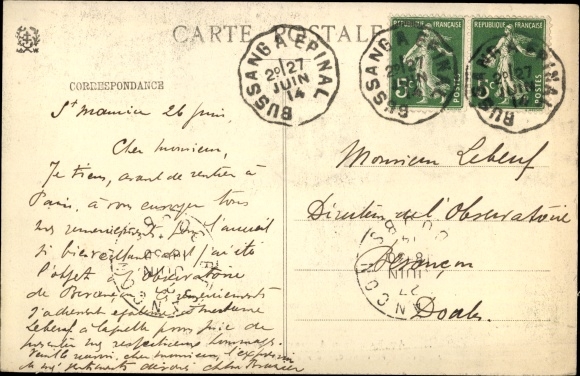 CARTE POSTALE
CORRESPONDANCE
BUSSANG A EPINAL
2º/27
JUIN
14
REPUBLIQUE FRANÇAISE
5c
POSTES
REPUBLIQUE FRANÇAISE
5c
POSTES
BUSSANG A EPINAL
2º/27
JUIN
14
St Maurice 26 juin,
Cher Monsieur,
Je tiens, avant de rentrer à
Paris, à vous envoyer tous
mes remerciements pour l'accueil
si bienveillant dont j'ai été
l'objet à l'observatoire
de Besançon. Ces remerciements
s'adressent également à Madame
Lebeuf à laquelle je vous prie de
présenter mes respectueux hommages.
Veuillez recevoir, cher monsieur, l'expression
de mes sentiments dévoués
Monsieur Lebeuf
Directeur de l'Observatoire
Besançon
Doubs.